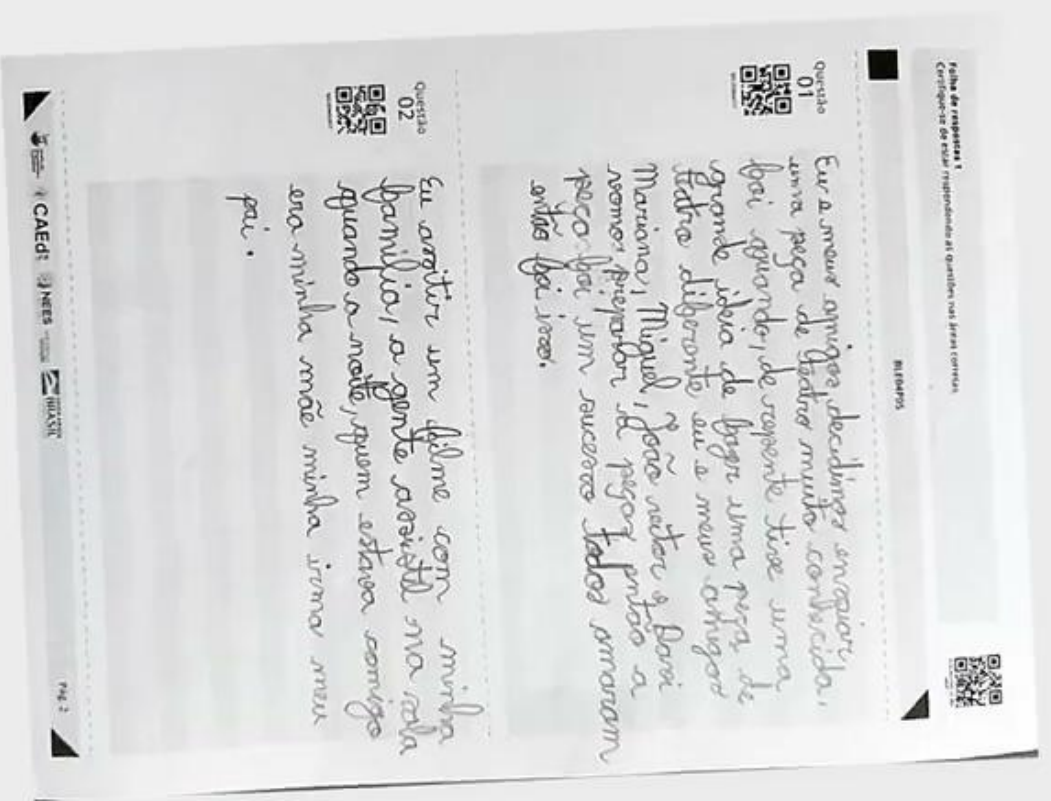 Folha de respostas 1
Certifique-se de estar respondendo as questões nas áreas corretas
BLE04P05
Questão
01
Eu e meus amigos decidimos ensaiar,
uma peça de teatro muito conhecida,
foi quando, de repente tive uma
grande ideia de fazer uma peça de
tatro diferente eu e meus amigos
Mariana, Miguel, João e Davi
vomos preparar a peça, então a
peça foi um sucesso todos amaram
então foi isso.
Questão
02
Eu assitir um filme com minha
familia, a gente assistil na sala
quando a noite, quem estava comigo
era minha mãe minha irma meu
pai.
CAEd
NEES
BRASIL
Pág. 2